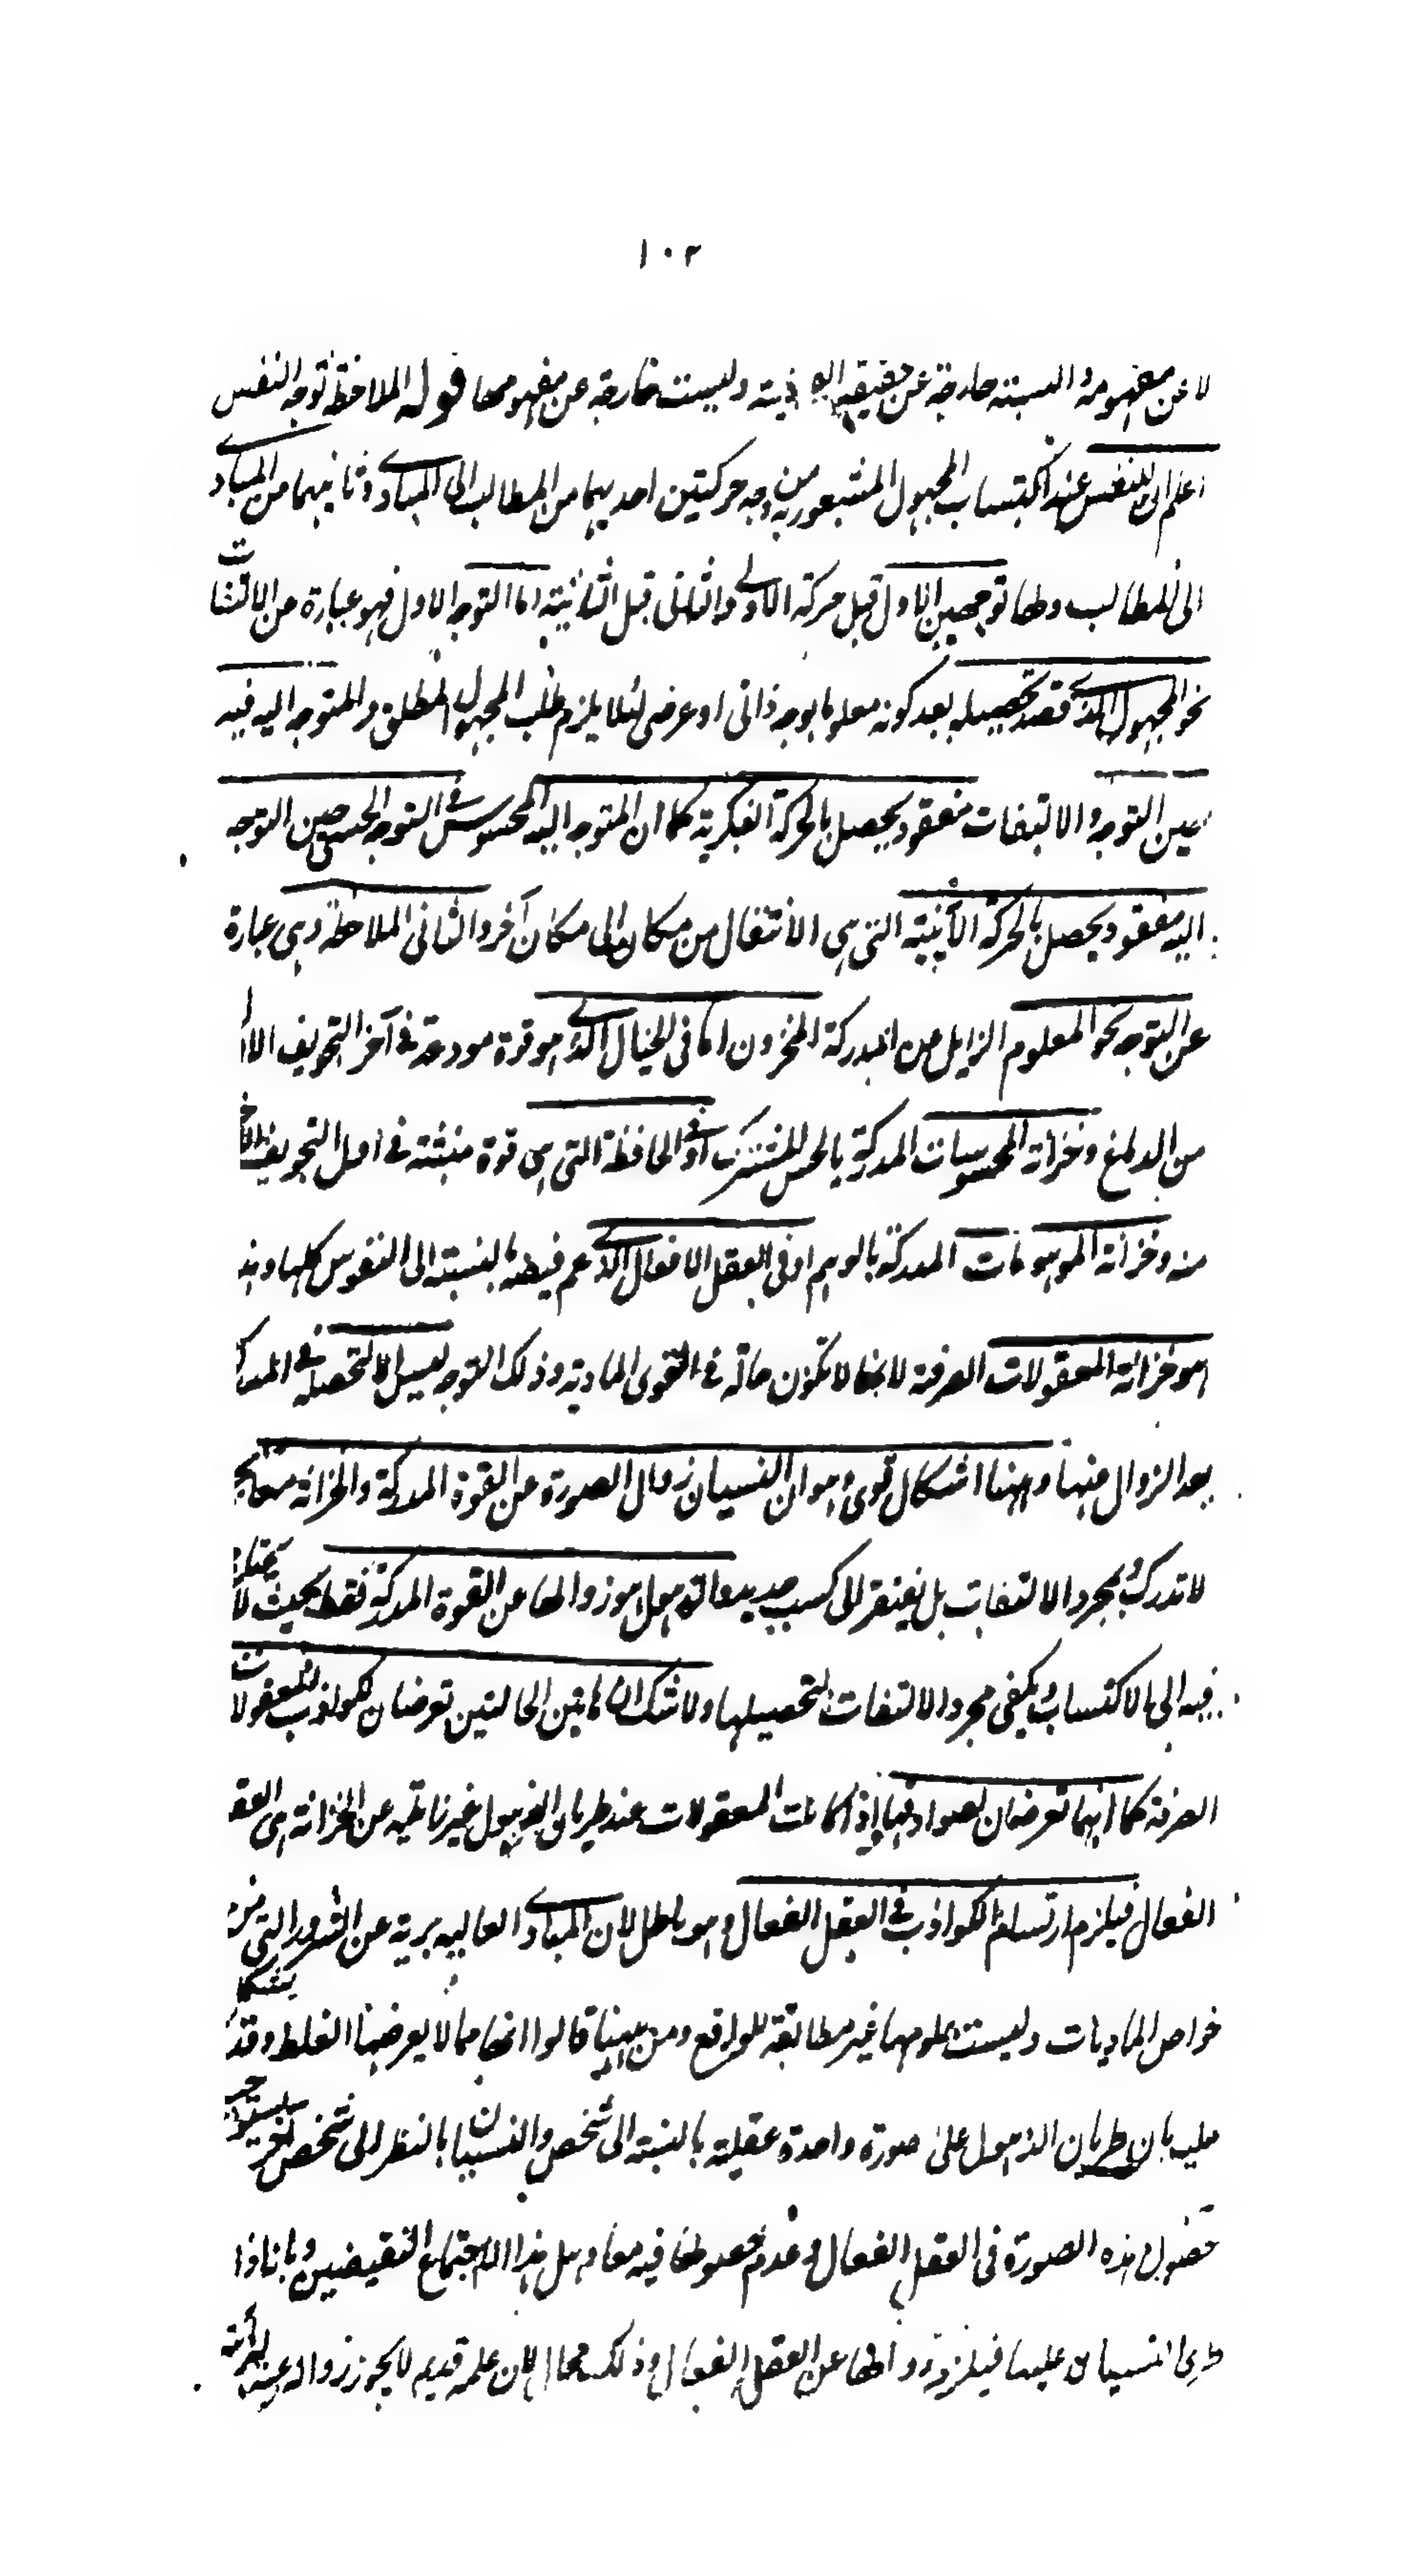 ١٠٢
لا عن مفهومه والنسبة خارجة عن حقيقة ذيته وليست خارجة عن مفهومها قوله الملاحظة توجه النفس
اعلم ان للنفس عند اكتساب المجهول المشعور به من وجه حركتين احديهما من المطالب الى المبادى وثانيهما من المبادى
الى المطالب ولها توجهين الاول قبل حركة الاولى والثانى قبل الثانية اما التوجه الاول فهو عبارة من الالتفات
نحو المجهول الذى قصد تحصيله بعد كونه معلوما بوجه ذاتى او عرضى لئلا يلزم طلب المجهول المطلق والمتوجه اليه فيه
حين التوجه والالتفات مفقود يحصل بالحركة الفكرية كما ان المتوجه اليه المحسوس فى التوجه الحسى حين التوجه
اليه مفقود يحصل بالحركة الأينية التى هى الانتقال من مكان الى مكان آخر والثانى الملاحظة وهى عبارة
عن التوجه نحو المعلوم الزايل من المدركة المخزون اما فى الخيال الذى هو قوة مودعة فى آخر التجويف الا
من الدماغ وخزانة المحسوسات المدركة بالحس المشترك او فى الحافظة التى هى قوة منبثة فى اول التجويف الاخر
منه وخزانة الموهومات المدركة بالوهم او فى العقل الافعال الذى عم فيضه بالنسبة الى النفوس كلها وهذ
هو خزانة المعقولات الصرفة لانها لا تكون حالة فى القوى المادية وذلك التوجه ليس الا لتحصله فى المدركة
بعد الزوال منها وههنا اشكال قوى وهو ان النسيان زوال الصورة من القوة المدركة والخزانة معا بحيث
لا تدرك بمجرد الالتفات بل يفتقر الى كسب جديد والذهول هو زوالها عن القوة المدركة فقط بحيث لا يحتاج
فيه الى الاكتساب ويكفى مجرد الالتفات لتحصيلها ولا شك ان هاتين الحالتين تعرضان لكواذب المعقولات
الصرفة كما انهما تعرضان لصوادقها اذا كانت المعقولات عند طريان الذهول غير زائلة عن الخزانة هى العقل
الفعال فيلزم ارتسام الكواذب فى العقل الفعال وهو باطل لان المبادى العاليه برية عن الشرور التى من
خواص الماديات وليست علومها غير مطابقة للواقع ومن ههنا قالوا انها مما لا يعرضها الغلط وقد يشكل
عليه بان طريان الذهول على صورة واحدة عقلية بالنسبة الى شخص والنسيان بالنظر الى شخص آخر يستوجب
حصول هذه الصورة فى العقل الفعال وعدم حصولها فيه معا وهل هذا الا اجتماع النقيضين وبانا اذا
طرى النسيان عليها فيلزم زوالها عن العقل الفعال وذلك محال لان علمه قديم لا يجوز زواله عنه لبرأته